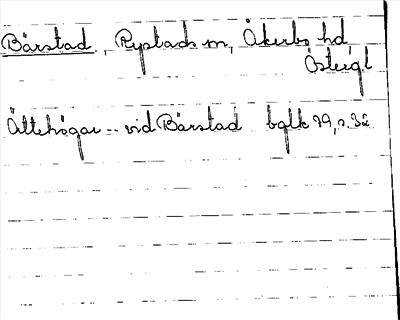 Bårstad, Rystads sn, Åkerbo hd,
Östergl
Ättehögar -- vid Bårstad bglk 79, s. 32